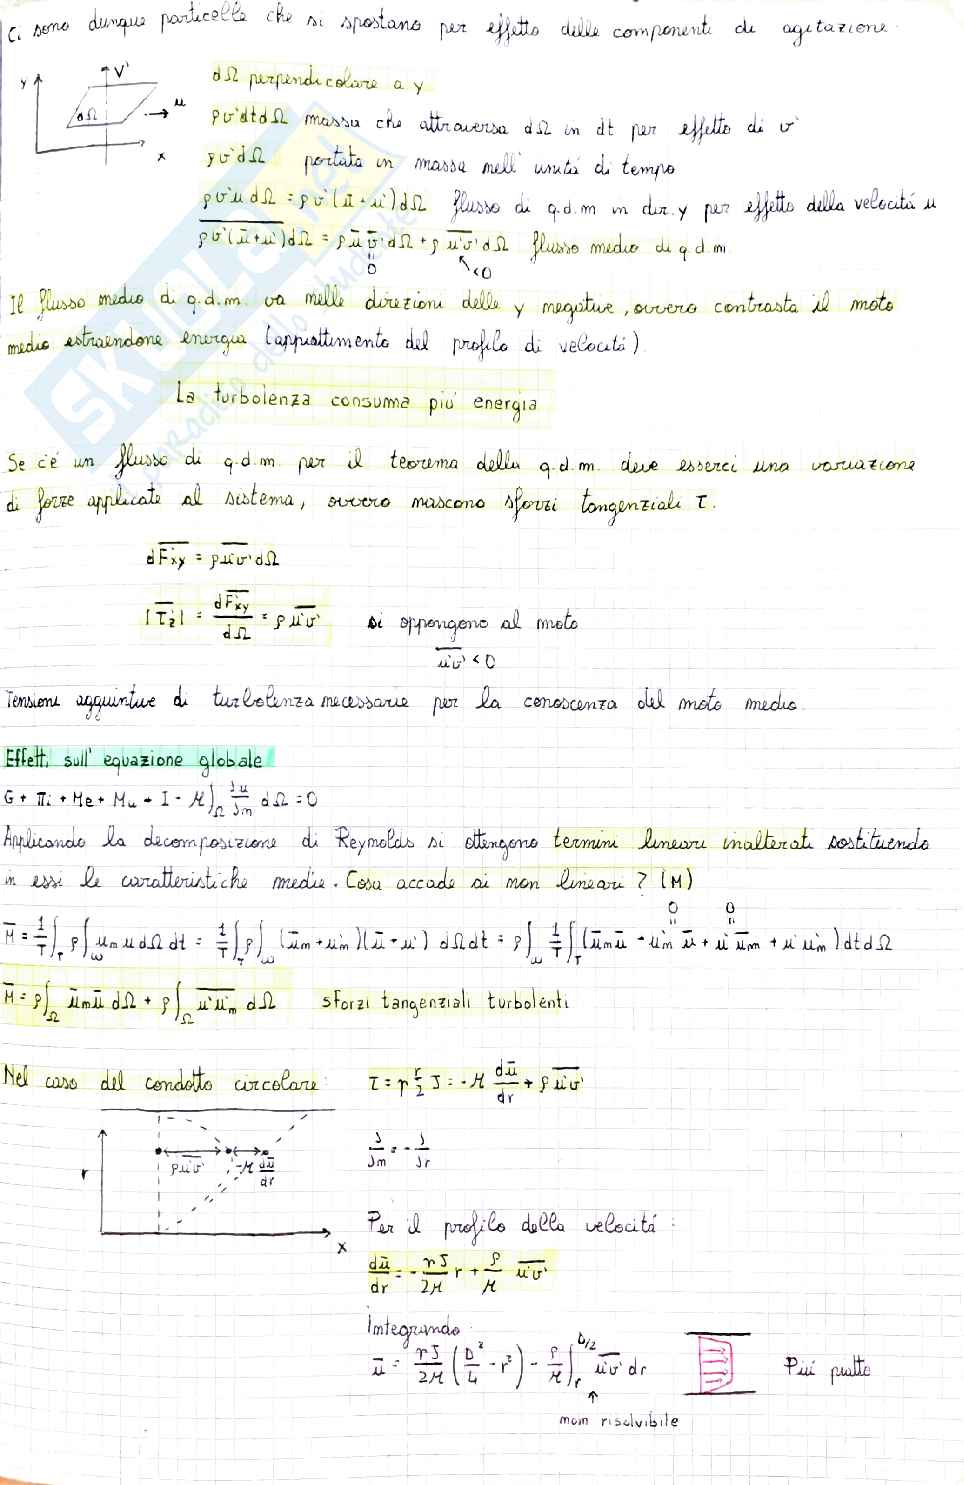 Ci sono dunque particelle che si spostano per effetto delle componenti di agitazione.
y V' dΩ u x
dΩ perpendicolare a y
ρv'dtdΩ massa che attraversa dΩ in dt per effetto di v'
ρv'dΩ portata in massa nell'unitá di tempo
ρv'u dΩ = ρv'(ū+u')dΩ flusso di q.d.m in dir. y per effetto della velocitá u
\overline{ρv'(ū+u')}dΩ = ρ ū \overline{v'} dΩ + ρ \overline{u'v'} dΩ flusso medio di q.d.m.
= 0 <0
Il flusso medio di q.d.m. va nelle direzioni delle y negative, ovvero contrasta il moto
medio estraendone energia (appiattimento del profilo di velocitá).
La turbolenza consuma piú energia
Se c'é un flusso di q.d.m. per il teorema della q.d.m. deve esserci una variazione
di forze applicate al sistema, ovvero nascono sforzi tangenziali τ.
d\overline{Fxy} = ρ\overline{u'v'}dΩ
|\overline{τz}| = d\overline{Fxy}/dΩ = ρ \overline{u'v'} si oppongono al moto
\overline{u'v'} <0
Tensioni aggiuntive di turbolenza necessarie per la conoscenza del moto medio.
Effetti sull'equazione globale
G + πi + Me + Mu + I - μ∫_Ω ∂u/∂n dΩ = 0
Applicando la decomposizione di Reynolds si ottengono termini lineari inalterati sostituendo
in essi le caratteristiche medie. Cosa accade ai non lineari? (M)
0 0
\overline{M} = 1/T ∫_T ρ∫_ω u_n u dΩ dt = 1/T ∫_T ρ∫_ω (ū_n + u'_n)(ū + u') dΩdt = ρ∫_ω 1/T ∫_T (ū_n ū + u'_n ū + u' ū_n + u' u'_n) dt dΩ
\overline{M} = ρ∫_Ω ū_n ū dΩ + ρ∫_Ω \overline{u'u'_n} dΩ sforzi tangenziali turbolenti
Nel caso del condotto circolare: τ = γ r/2 J = -μ dū/dr + ρ\overline{u'v'}
r ρ\overline{u'v'} -μ dū/dr x
∂/∂n = -∂/∂r
Per il profilo della velocitá:
dū/dr = -γJ/2μ r + ρ/μ \overline{u'v'}
Integrando
ū = γJ/2μ (D²/4 - r²) - ρ/μ ∫_r^{D/2} \overline{u'v'} dr Piú piatto
non risolvibile